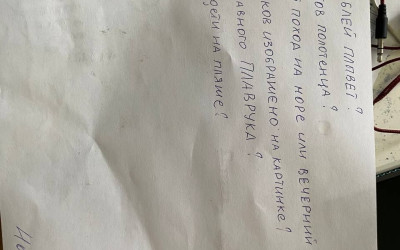 БЛЕЙ ПЛОВЕТ?
ОВ ПОЛОТЕНЦА?
Й ПОХОД НА МОРЕ ИЛИ ВЕЧЕРНИЙ
КОВ ИЗОБРАЖЕНО НА КАРТИНКЕ?
АВНОГО ПЛАВРУКА?
ДЕТИ НА ПЛЯЖЕ?